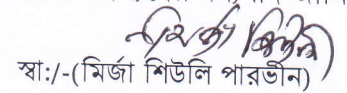 স্বা:/-(মির্জা শিউলি পারভীন)